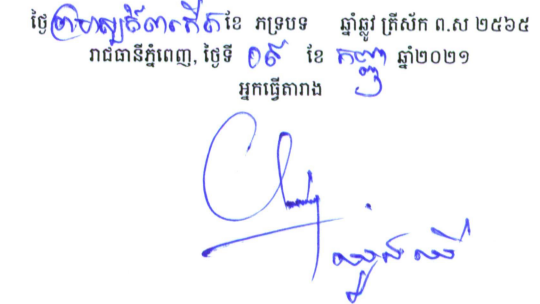 ថ្ងៃ ព្រហស្បតិ៍ ៣កើត ខែ ភទ្របទ ឆ្នាំឆ្លូវ ត្រីស័ក ព.ស ២៥៦៥
រាជធានីភ្នំពេញ, ថ្ងៃទី ០៩ ខែ កញ្ញា ឆ្នាំ២០២១
អ្នកធ្វើតារាង